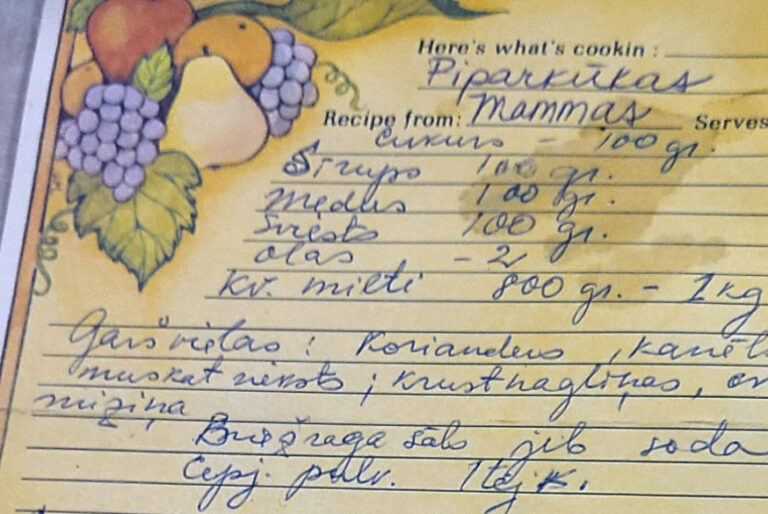 Here's what's cookin :
Piparkūkas
Recipe from: Mammas Serves
Cukurs - 100 gr.
Sīrups 100 gr.
Medus 100 gr.
Sviests 100 gr.
Olas - 2
Kv. milti 800 gr. - 1 kg
Garšvielas : Korianders , kanēls
muskat rieksts ; krustnagliņas,
miziņa
Briežraga sāls jeb soda
Cepj. pulv. 1 tej k.